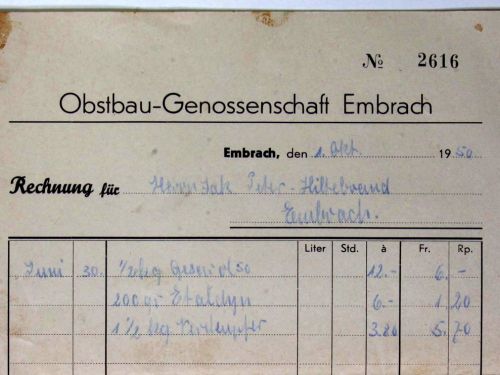 № 2616
Obstbau-Genossenschaft Embrach
Embrach, den 1. Okt. 1950
Rechnung für Herrn Jak. Peter-Hillebrand
Embrach.
Liter Std. à Fr. Rp.
Juni 30. 1/2 kg Gesarol 50 12.- 6. -
200 gr 6.- 1 20
1 1/2 kg 3.80 5. 70